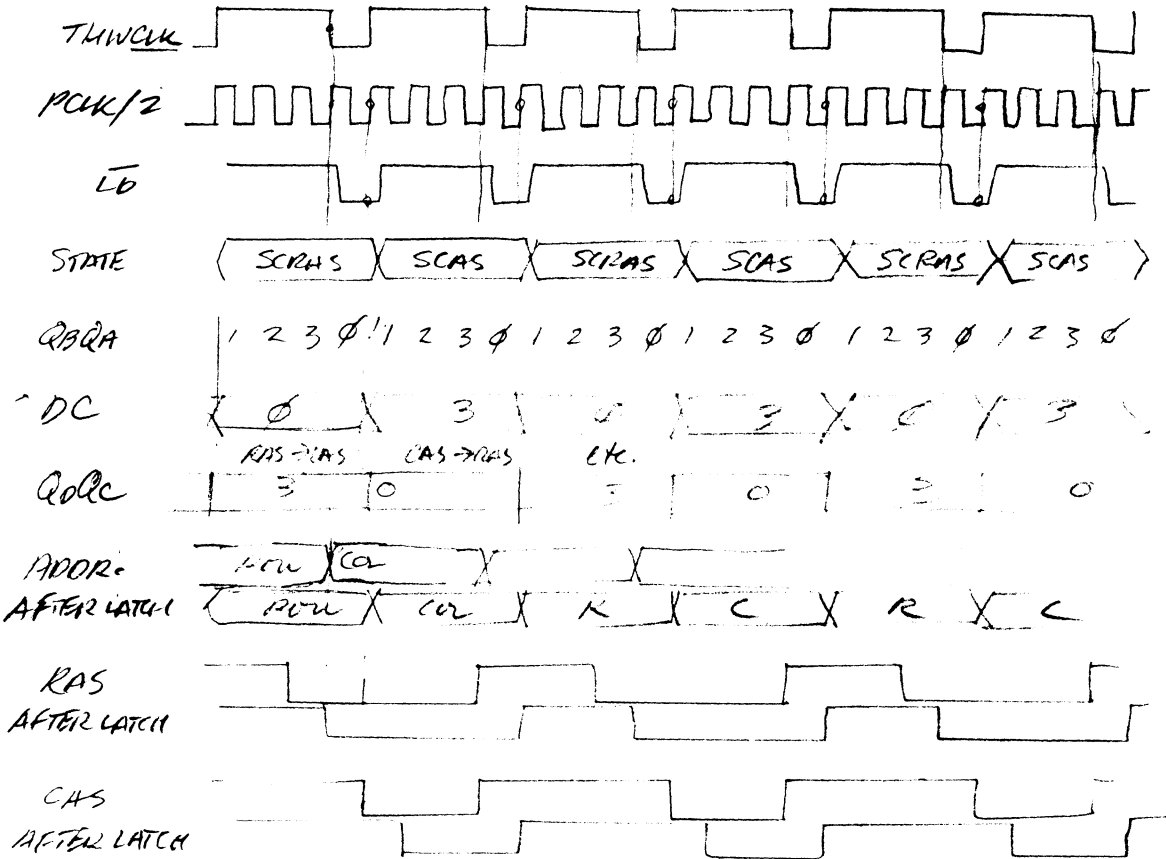 PCLK/2
LD
STATE SCRAS SCAS SCRAS SCAS SCRAS SCAS
QBQA 1 2 3 Ø 1 2 3 Ø 1 2 3 Ø 1 2 3 Ø 1 2 3 Ø 1 2 3 Ø
DC Ø 3 3 3
RAS→CAS CAS→RAS etc.
QDQC 3 0 0 0
ADDR: ROW COL
AFTER LATCH ROW COL R C R C
RAS
AFTER LATCH
CAS
AFTER LATCH